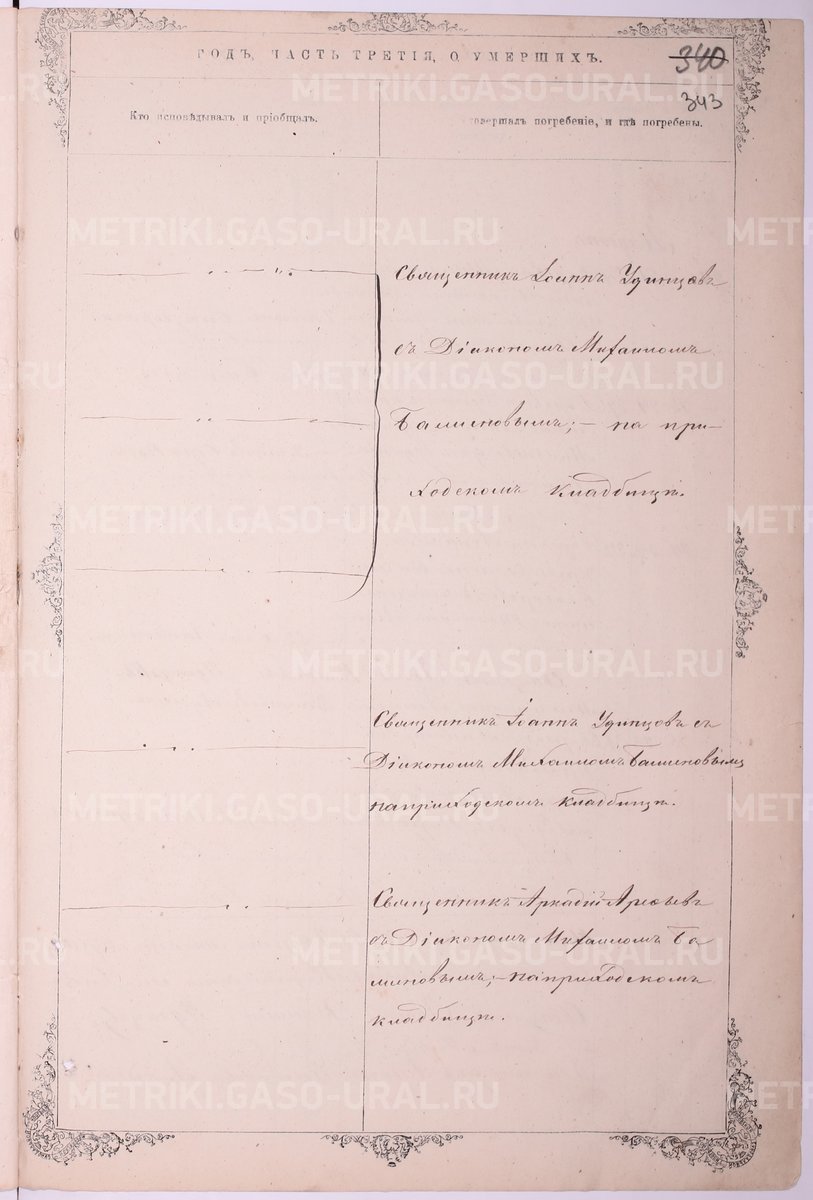 ГОДЪ, ЧАСТЬ ТРЕТІЯ, О УМЕРШИХЪ.
340
343
Кто исповѣдывалъ и пріобщалъ.
совершалъ погребеніе, и гдѣ погребены.
Священникъ Іоаннъ Удинцовъ
съ Діакономъ Михаиломъ
новымъ; – на при-
ходскомъ кладбищѣ.
Священникъ Іоаннъ Удинцовъ съ
Діакономъ Михаиломъ
на приходскомъ кладбищѣ.
Священникъ Аркадій
съ Діакономъ Михаиломъ Ба
новымъ; – на приходскомъ
кладбищѣ.
METRIKI.GASO-URAL.RU